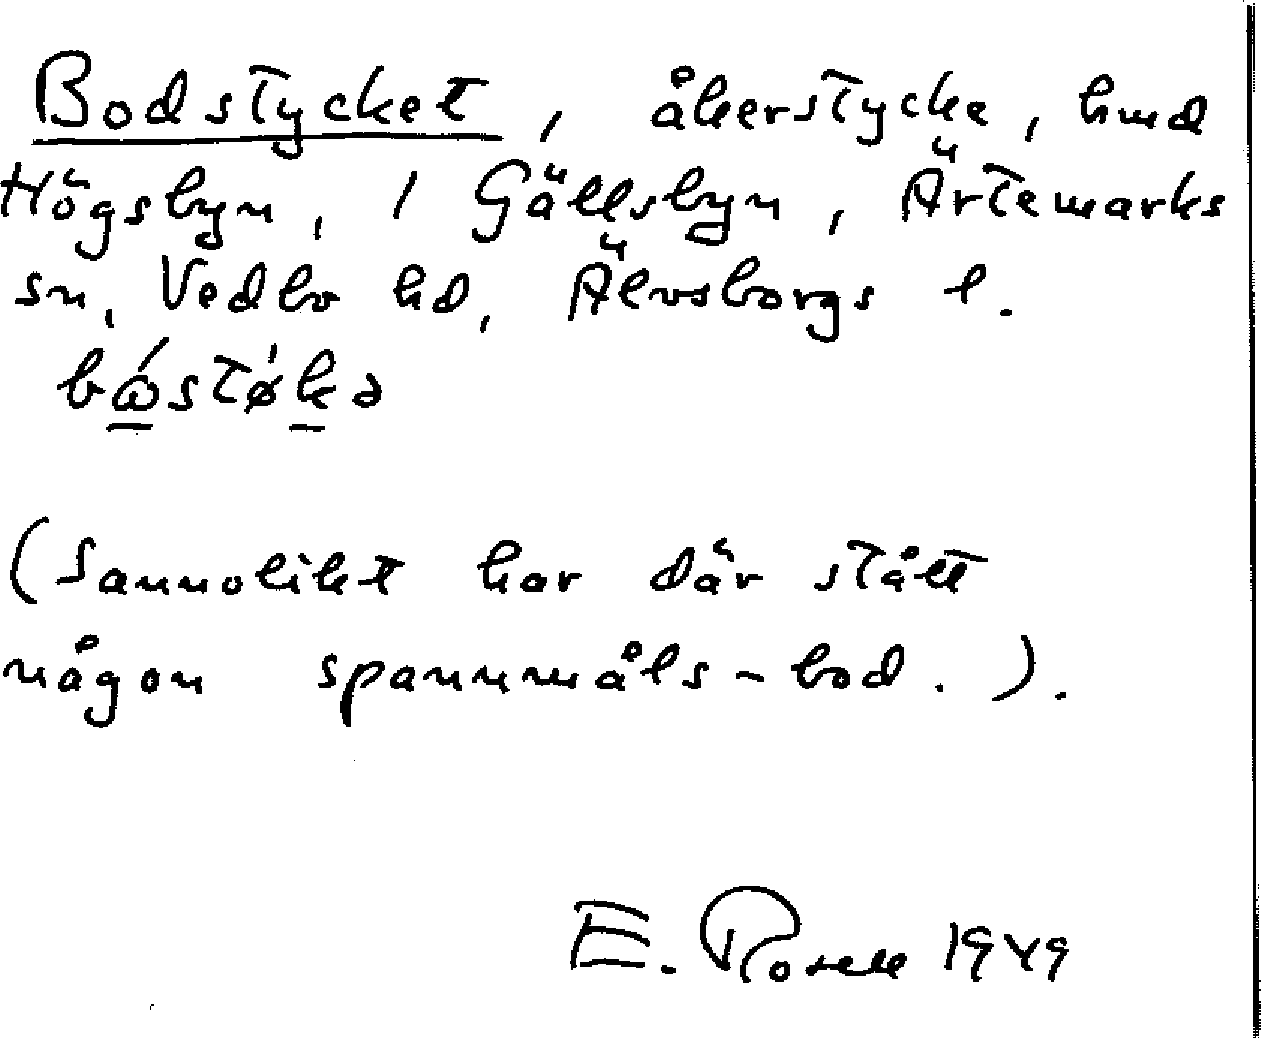 Bodstycket, åkerstycke, hmd
Högsbyn, 1 Gällsbyn, Ärtemarks
sn, Vedbo hd, Älvsborgs l.
bǻstø̍kə
(Sannolikt har där stått
någon spannmåls-bod.).
E. Rosell 1949